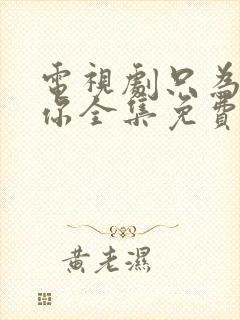 電視劇只為
你全集免費
黃老濕